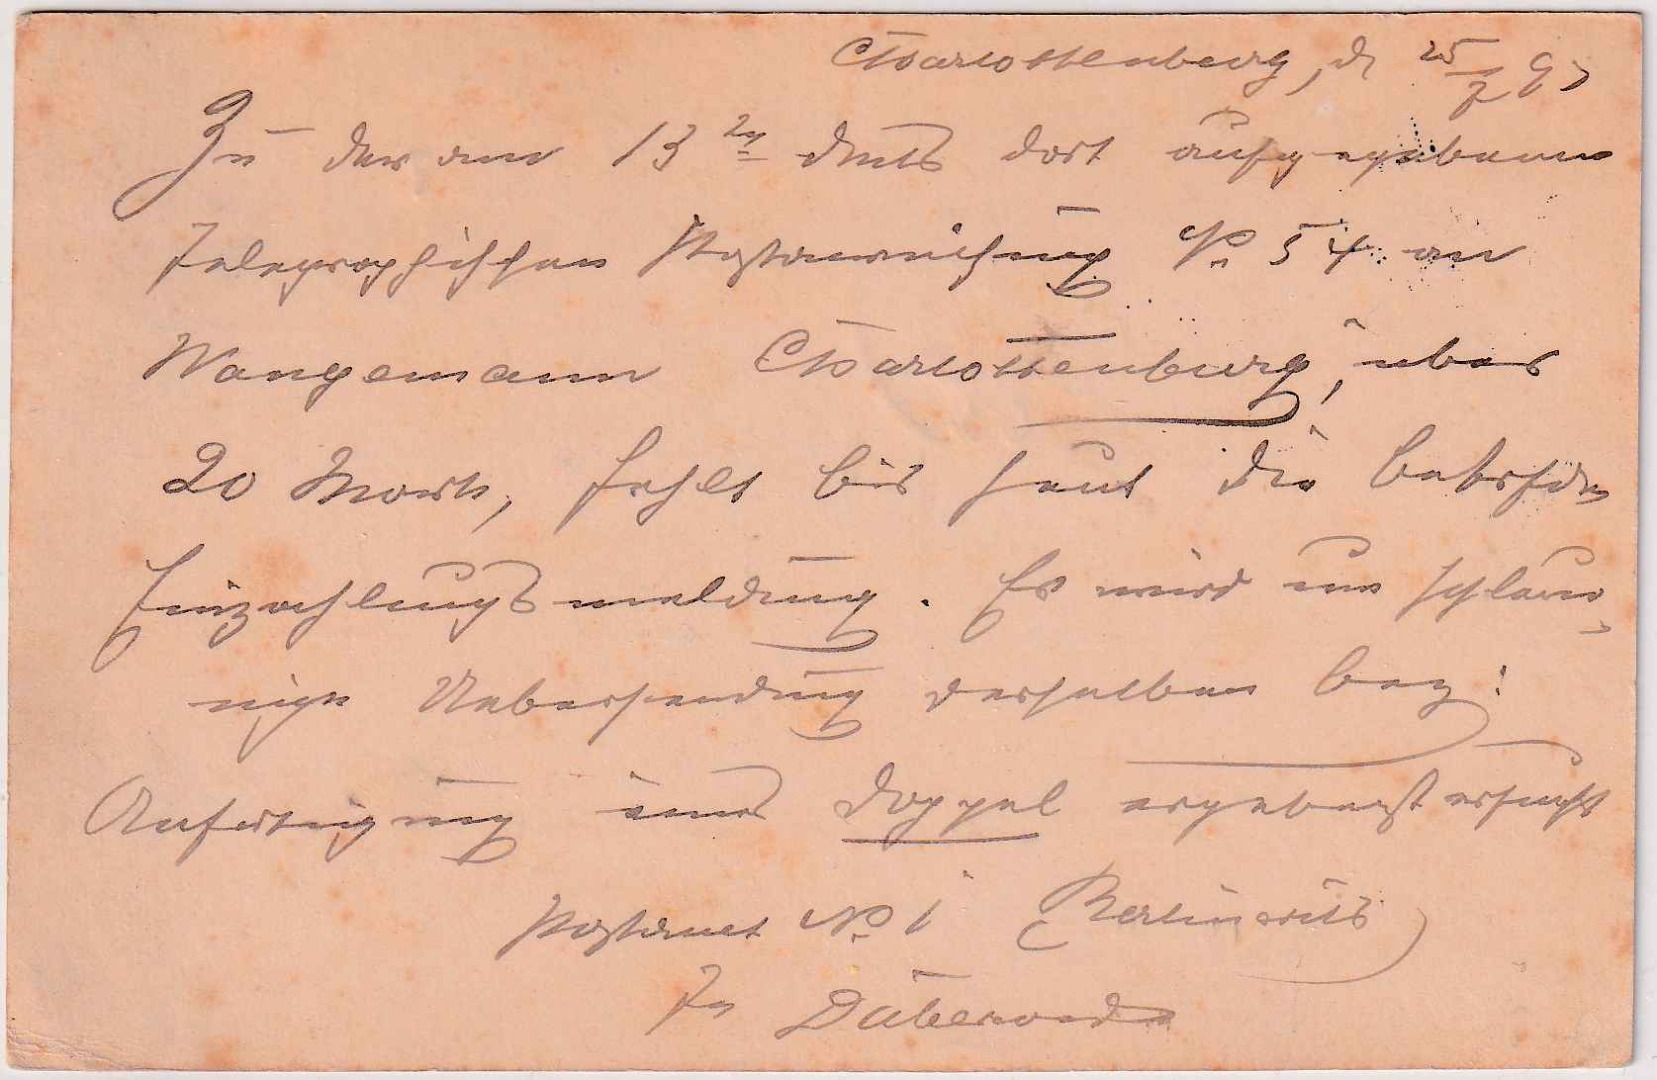 Charlottenburg, d 25/7 97
Zu der am 13ten dmts dort aufgegebenen
telegraphischen Postanweisung No 54 an
Wangemann Charlottenburg, über
20 Mark, fehlt bis heut die
Einzahlungsmeldung. Es wird um schleu-
nige Uebersendung derselben bez:
Anfertigung eines Doppel ergebenst ersucht
Postamt No 1